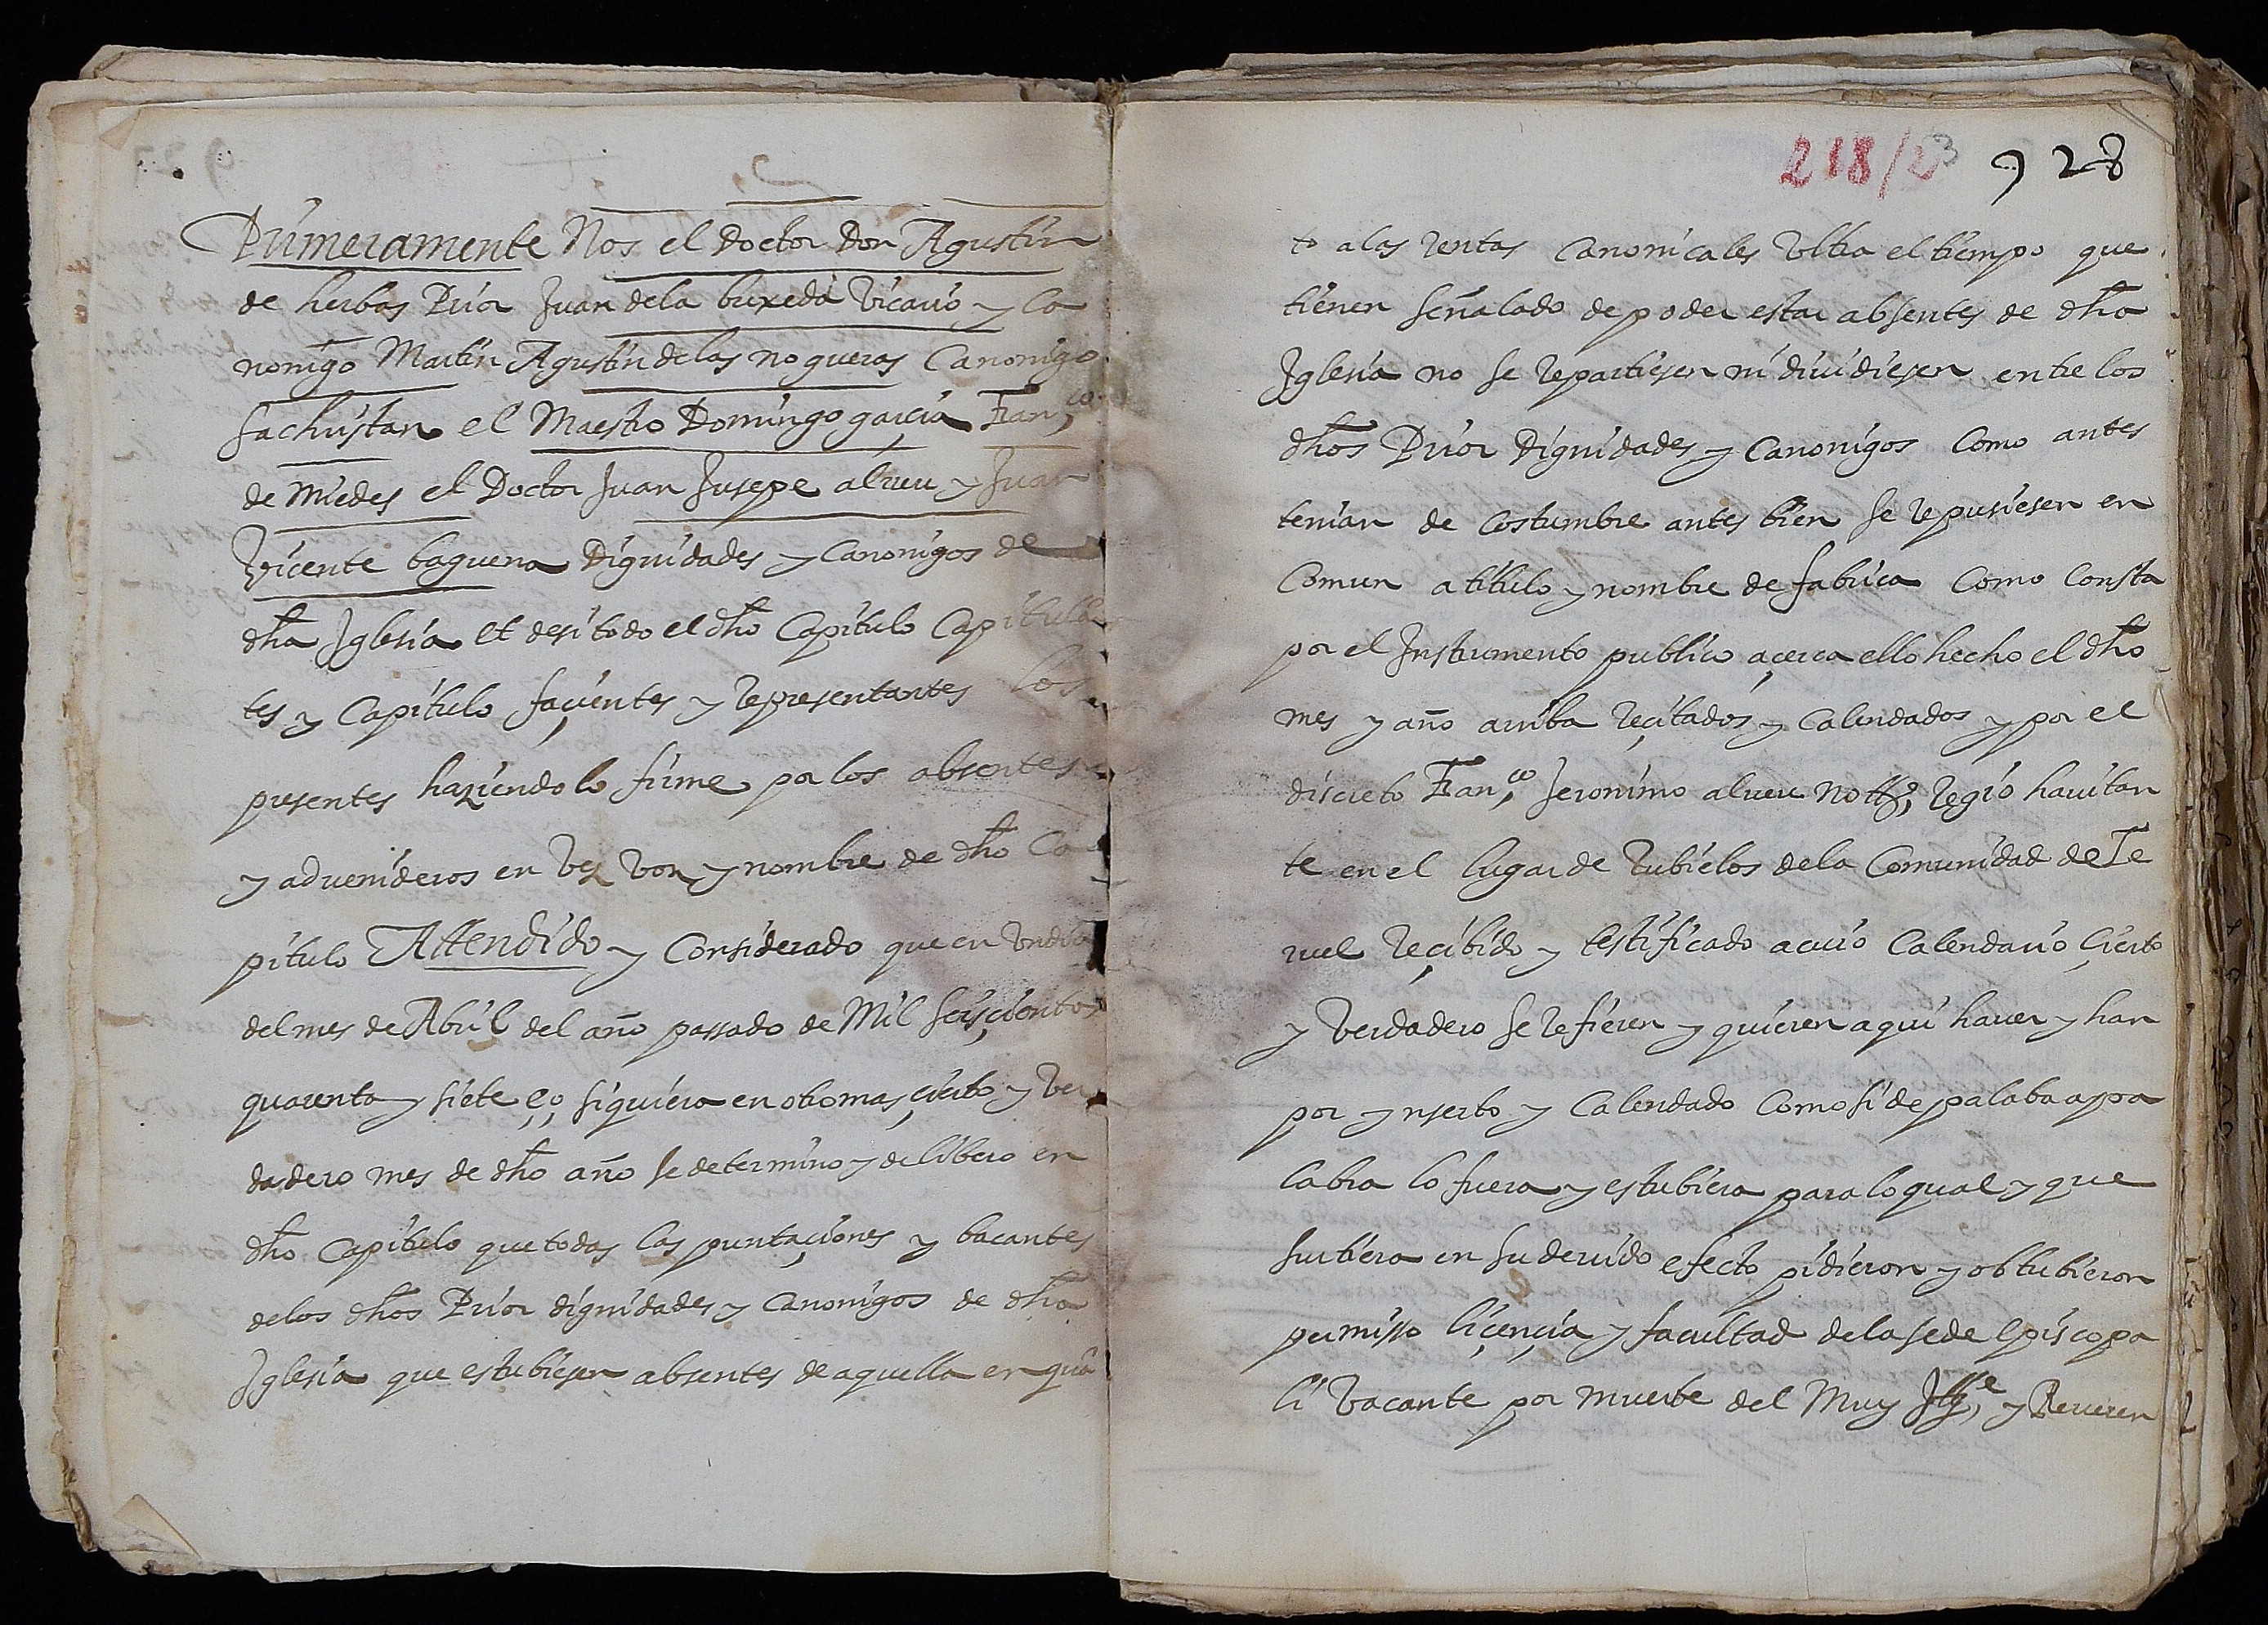 Primeramente Nos el Doctor Don Agustin
de herbas Prior Juan dela buxeda Vicario y Ca
nonigo Martin Agustin delas nogueras Canonigo
sachristan el Maestro Domingo garçia Fran,co
de Miedes el Doctor Juan Jusepe alreu y Juan
Vicente baguena Dignidades y Canonigos de
dha Iglesia et desi todo el dho Capitulo Capitulã
tes y Capitulo façientes y representantes los
presentes haziendolo firme por los absentes
y advenideros en vez voz y nombre de dho Ca
pitulo Attendido y Considerado que en un dia
del mes de Abril del año passado de Mil seisçientos
quarenta y siete eo, siquiera en otro mas çierto y ver
dadero mes de dho año se determino y delibero en
dho Capitulo que todas las puntaçiones y bacantes
delos dhos Prior dignidades y Canonigos de dha
Iglesia que estubiesen absentes de aquella en quã
218/23 928
to a las rentas Canonicales ultra el tiempo que
tienen señalado de poder estar absentes de dha
Iglesia no se repartiesen ni diuidiesen entre los
dhos Prior Dignidades y Canonigos Como antes
tenian de Costumbre antes bien se repusiesen en
Comun a titulo y nombre de fabrica Como Consta
por el Instrumento publico açerca ello hecho el dho
mes y año arriba reçitados y Calendados y por el
discreto Fran,co Jeronimo alreu Notto, regio hauitan
te en el lugar de Rubielos dela Comunidad de Te
ruel reçibido y testificado a cuio Calendario çierto
y verdadero se refieren y quieren aqui hauer y han
por ynserto y Calendado Como si de palabra a pa
labra lo fuera y estubiera para lo qual y que
surtiera en su deuido efecto pidieron y obtubieron
permisso liçençia y facultad dela sede episcopa
li vacante por muerte del Muy Itte, y Reueren